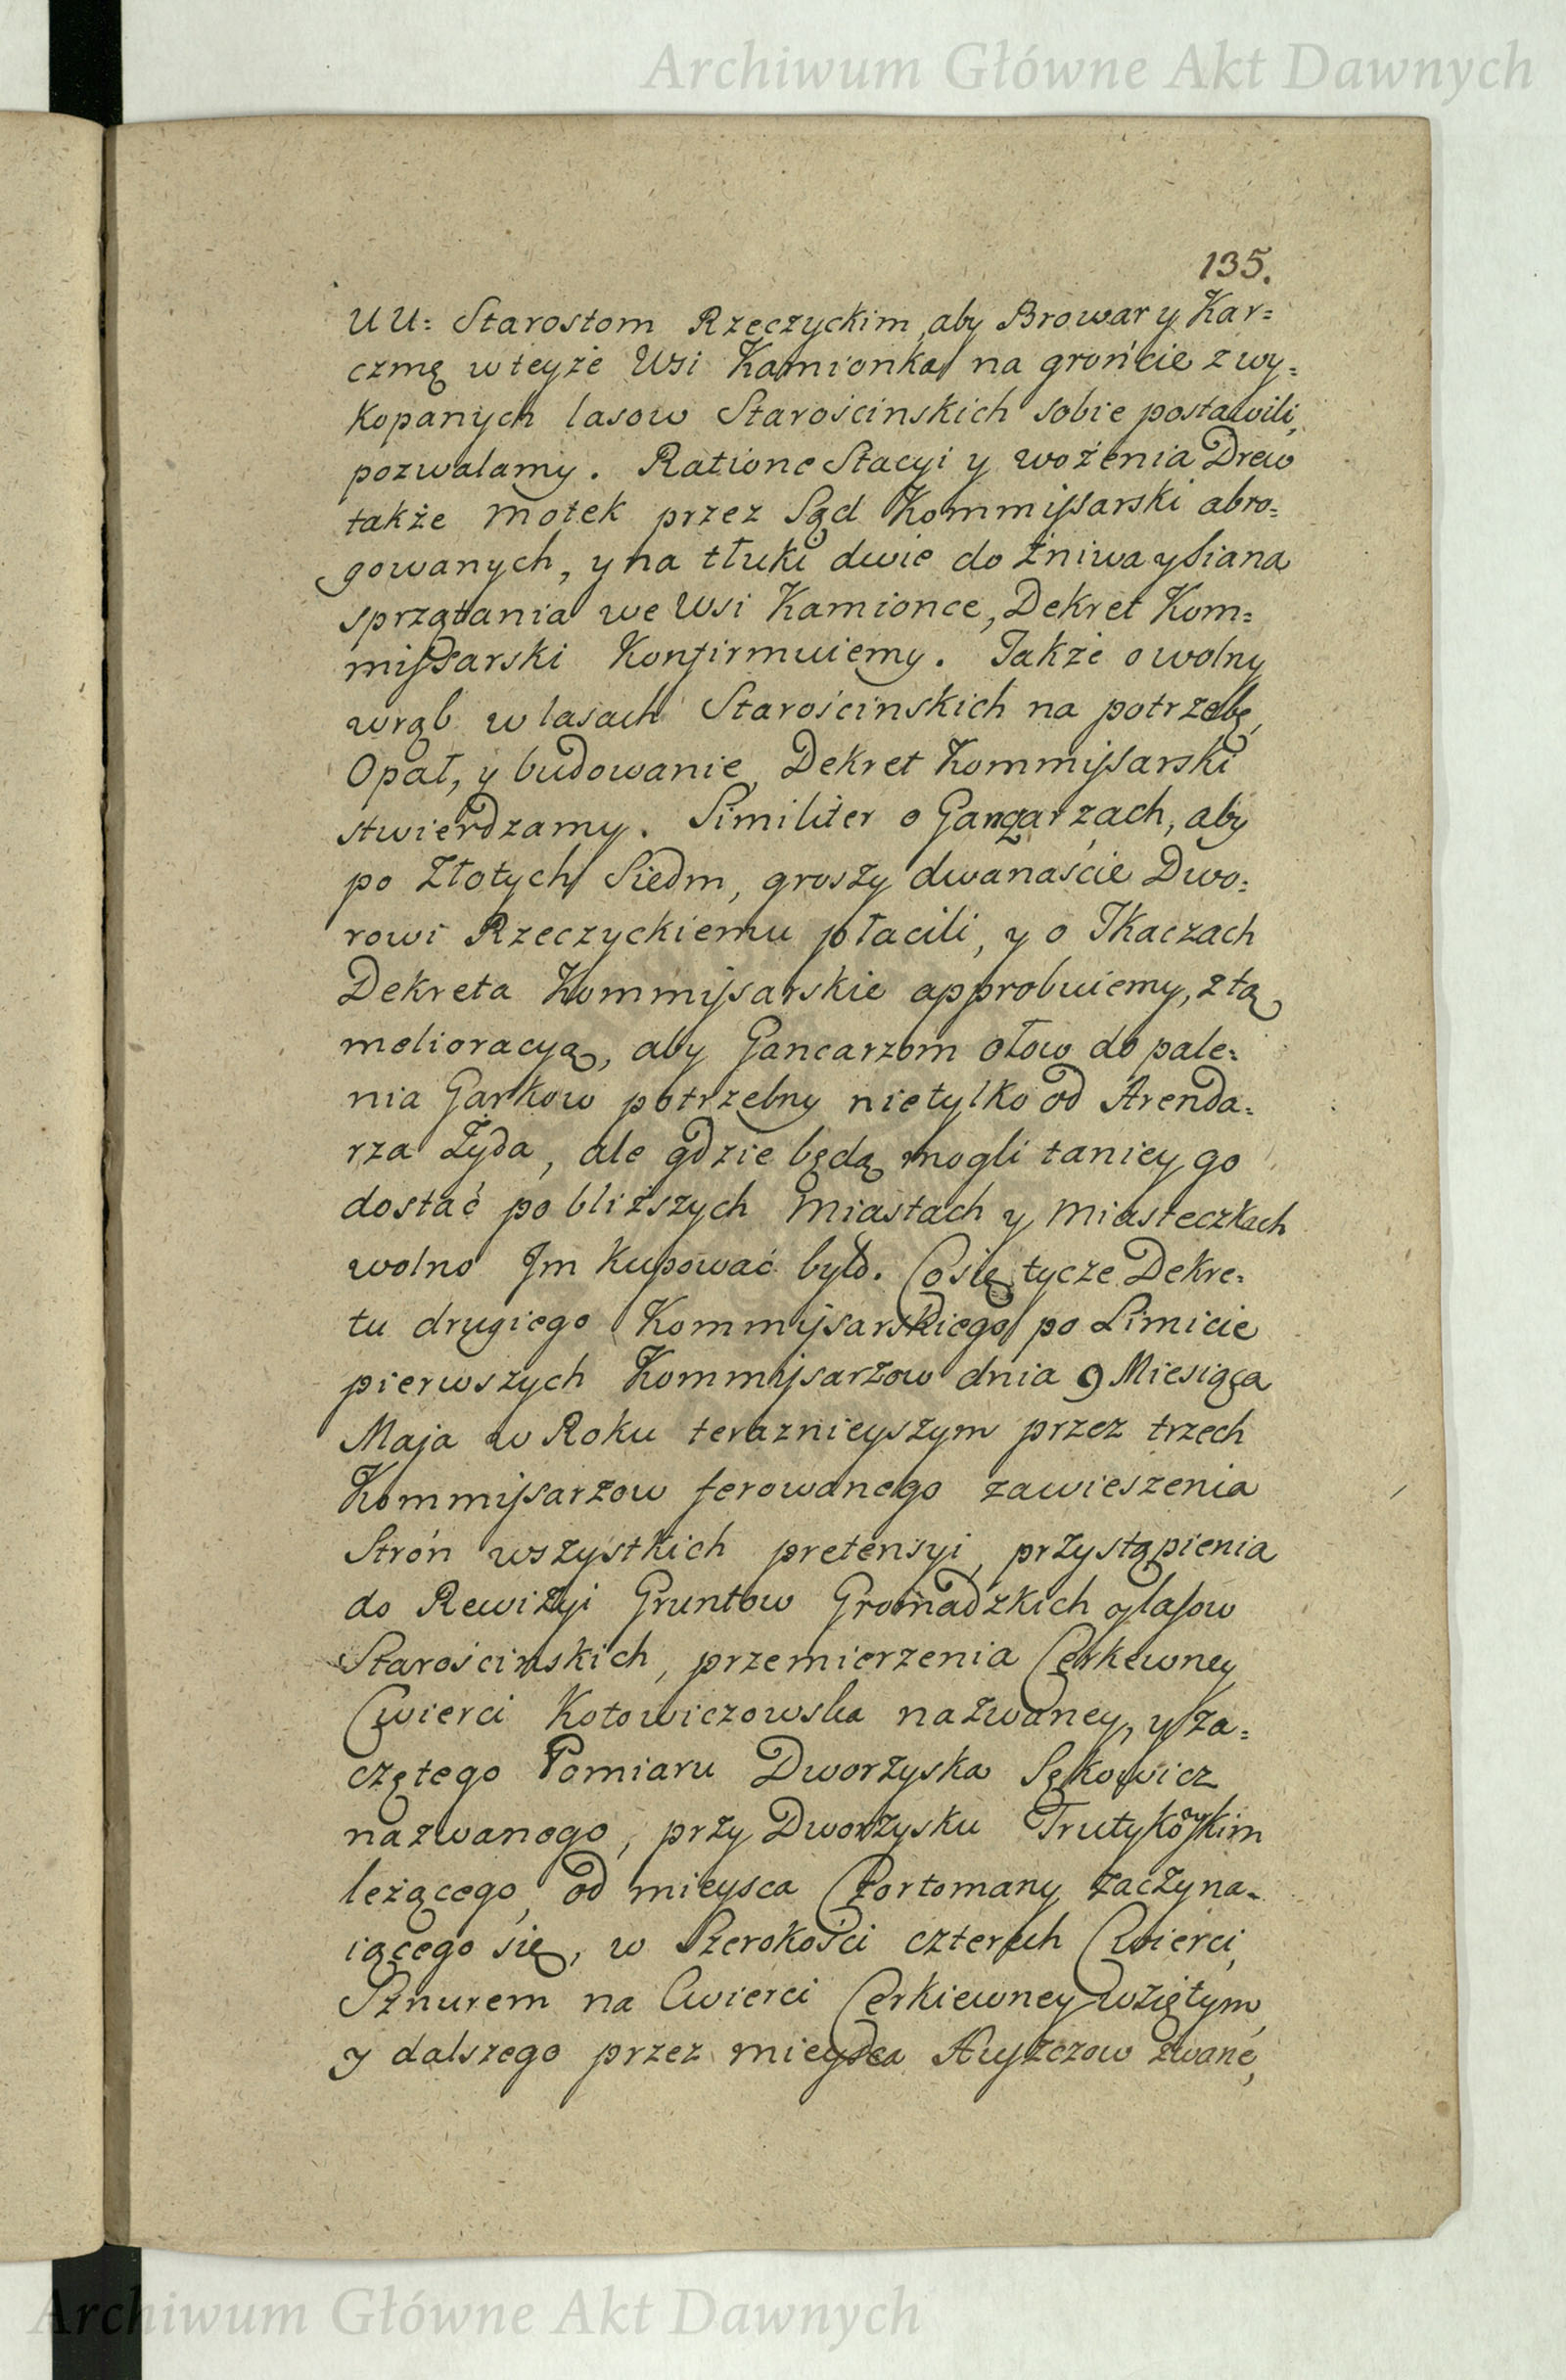 Archiwum Główne Akt Dawnych
135.
UU: Starostom Rzeczyckim, aby Browar y Kar=
czmę w teyże Wsi Kamionka na grońcie z wy=
kopanych lasow Starościnskich sobie postawili,
pozwalamy. Ratione Stacyi y wożenia Drew
także motek przez Sąd Kommissarski abro=
gowanych, y na tłuki dwie do Żniwa y Siana
sprzątania we Wsi Kamionce, Dekret Kom=
missarski Konfirmuiemy. Także o wolny
wrąb w lasach Starościnskich na potrzebę,
Opał, y budowanie, Dekret Kommissarski
stwierdzamy. Similiter o Gangarzach, aby
po Złotych Siedm, groszy dwanaście Dwo=
rowi Rzeczyckiemu płacili, y o Tkaczach
Dekreta Kommissarskie approbuiemy, z tą
melioracyą, aby Gancarzom ołow do pale=
nia Garkow potrzebny nietylko od Arenda=
rza Żyda, ale gdzie będą mogli taniey go
dostać po bliższych Miastach y Miasteczkach
wolno Im kupować było. Co się tycze Dekre=
tu drugiego Kommissarskiego po Limicie
pierwszych Kommissarzow dnia 9 Miesiąca
Maja w Roku teraznieyszym przez trzech
Kommissarzow ferowanego zawieszenia
Strón wszystkich pretensyi, przystąpienia
do Rewizyi Gruntow Gromadzkich y lasow
Starościnskich, przemierzenia Cerkewney
Cwierci Kotowiczowska nazwaney, y za=
czętego Pomiaru Dworzyska Sękowicz
nazwanego, przy Dworzysku Trutykowskim
leżącego, od mieysca Czortomany zaczyna=
iącego się, w Szerokości czterech Cwierci,
Sznurem na Cwierci Cerkiewney wziętym,
y dalszego przez mieysca zwane,
Archiwum Główne Akt Dawnych